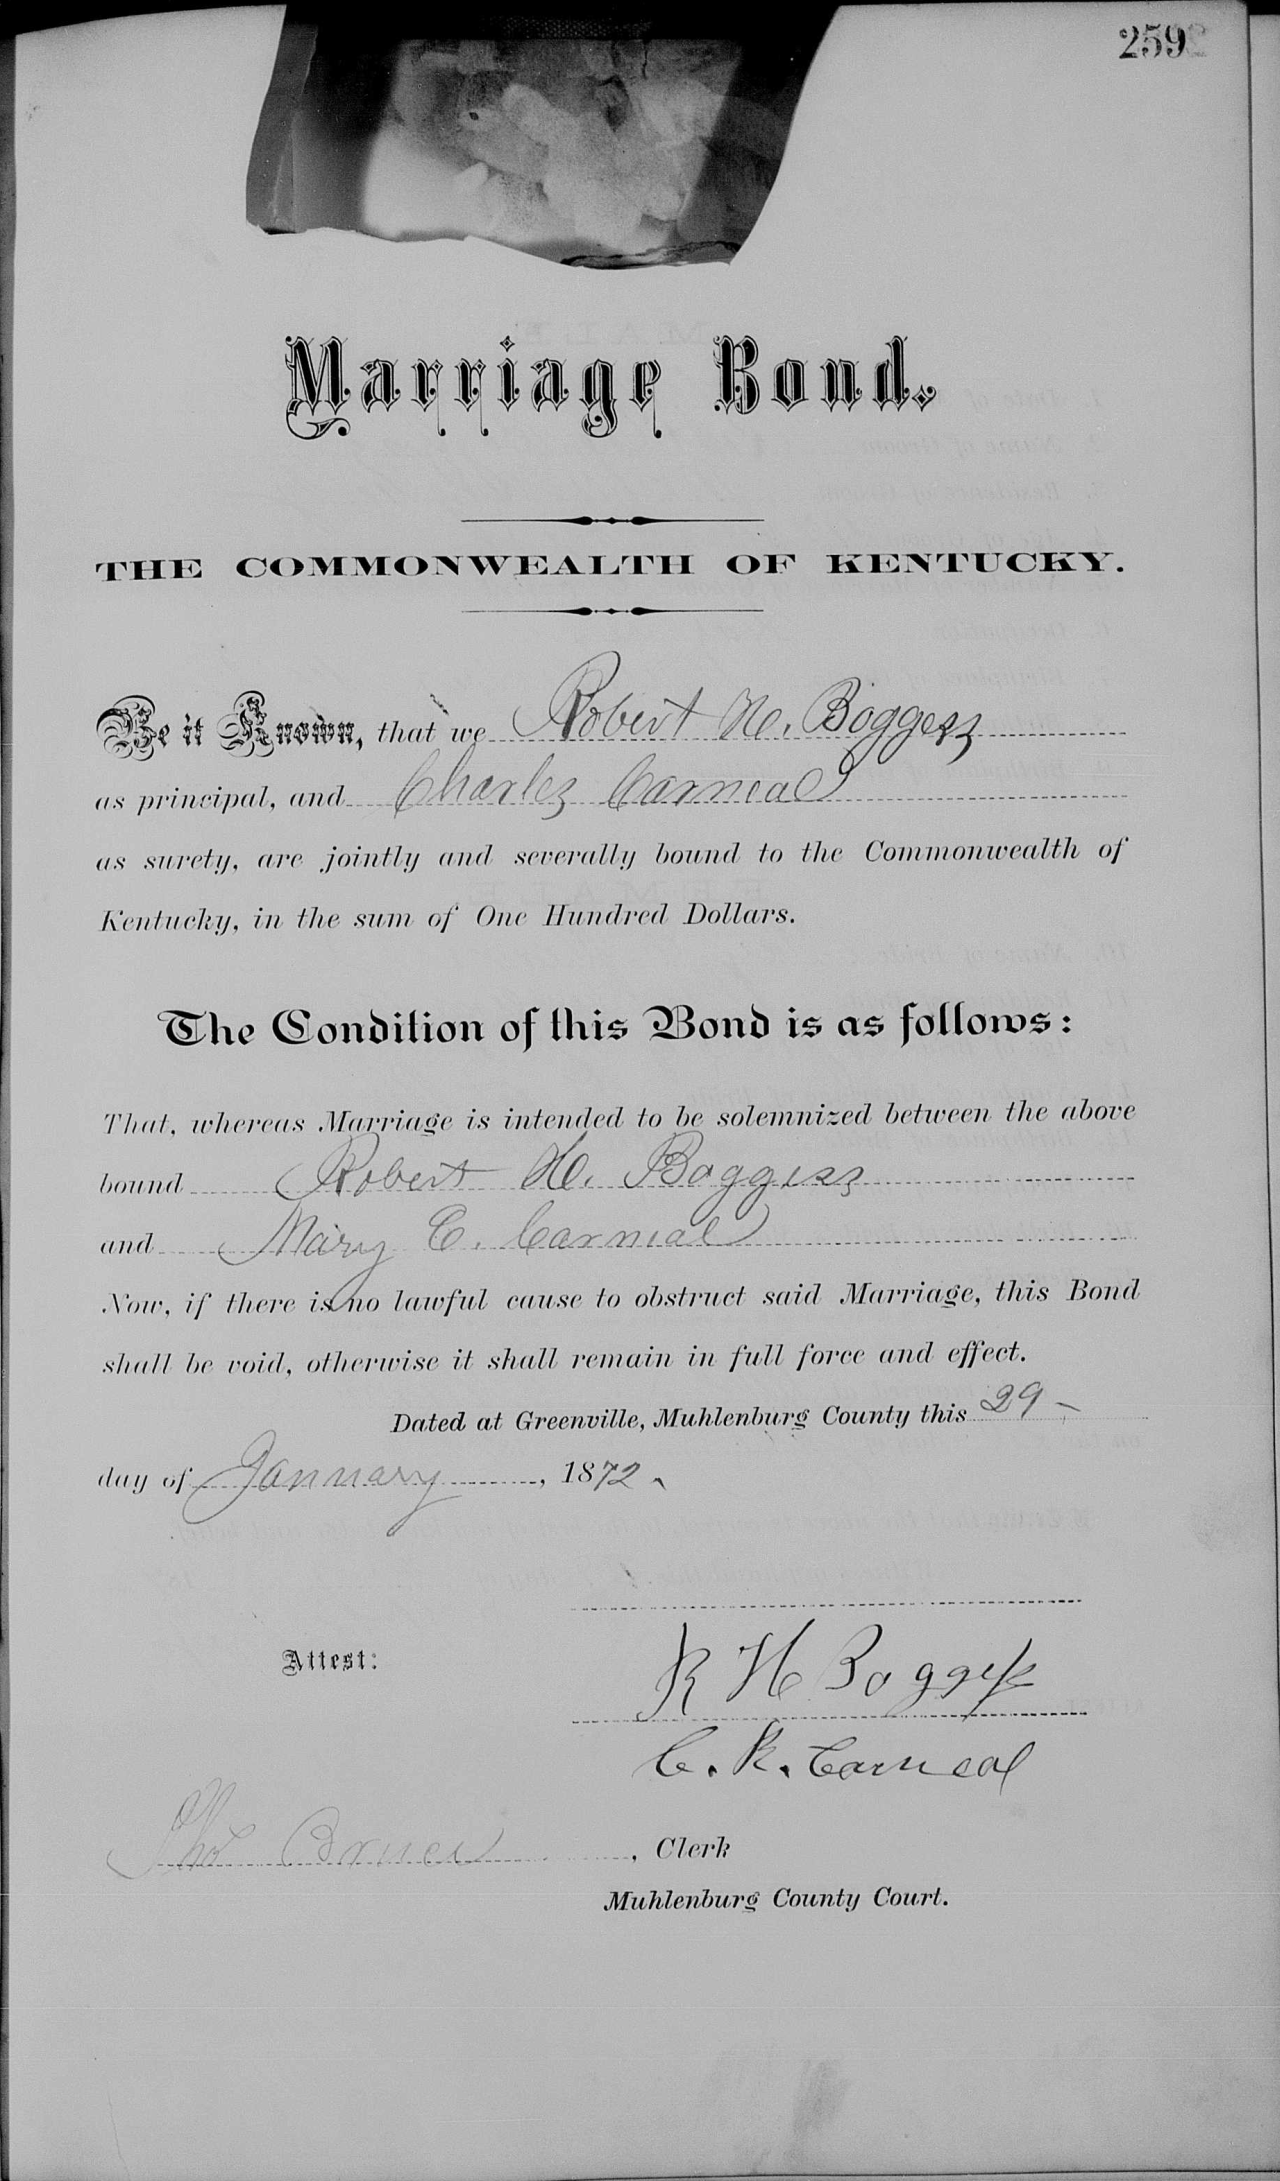 259
Marriage Bond.
THE COMMONWEALTH OF KENTUCKY.
Be it Known, that we Robert H. Boggess
as principal, and Charles Carneal
as surety, are jointly and severally bound to the Commonwealth of
Kentucky, in the sum of One Hundred Dollars.
The Condition of this Bond is as follows:
That, whereas Marriage is intended to be solemnized between the above
bound Robert H. Boggess
and Mary E. Carneal
Now, if there is no lawful cause to obstruct said Marriage, this Bond
shall be void, otherwise it shall remain in full force and effect.
Dated at Greenville, Muhlenburg County this 29
day of January, 1872.
Attest:
R H Boggess
C. R. Carneal
Thos Bruce, Clerk
Muhlenburg County Court.